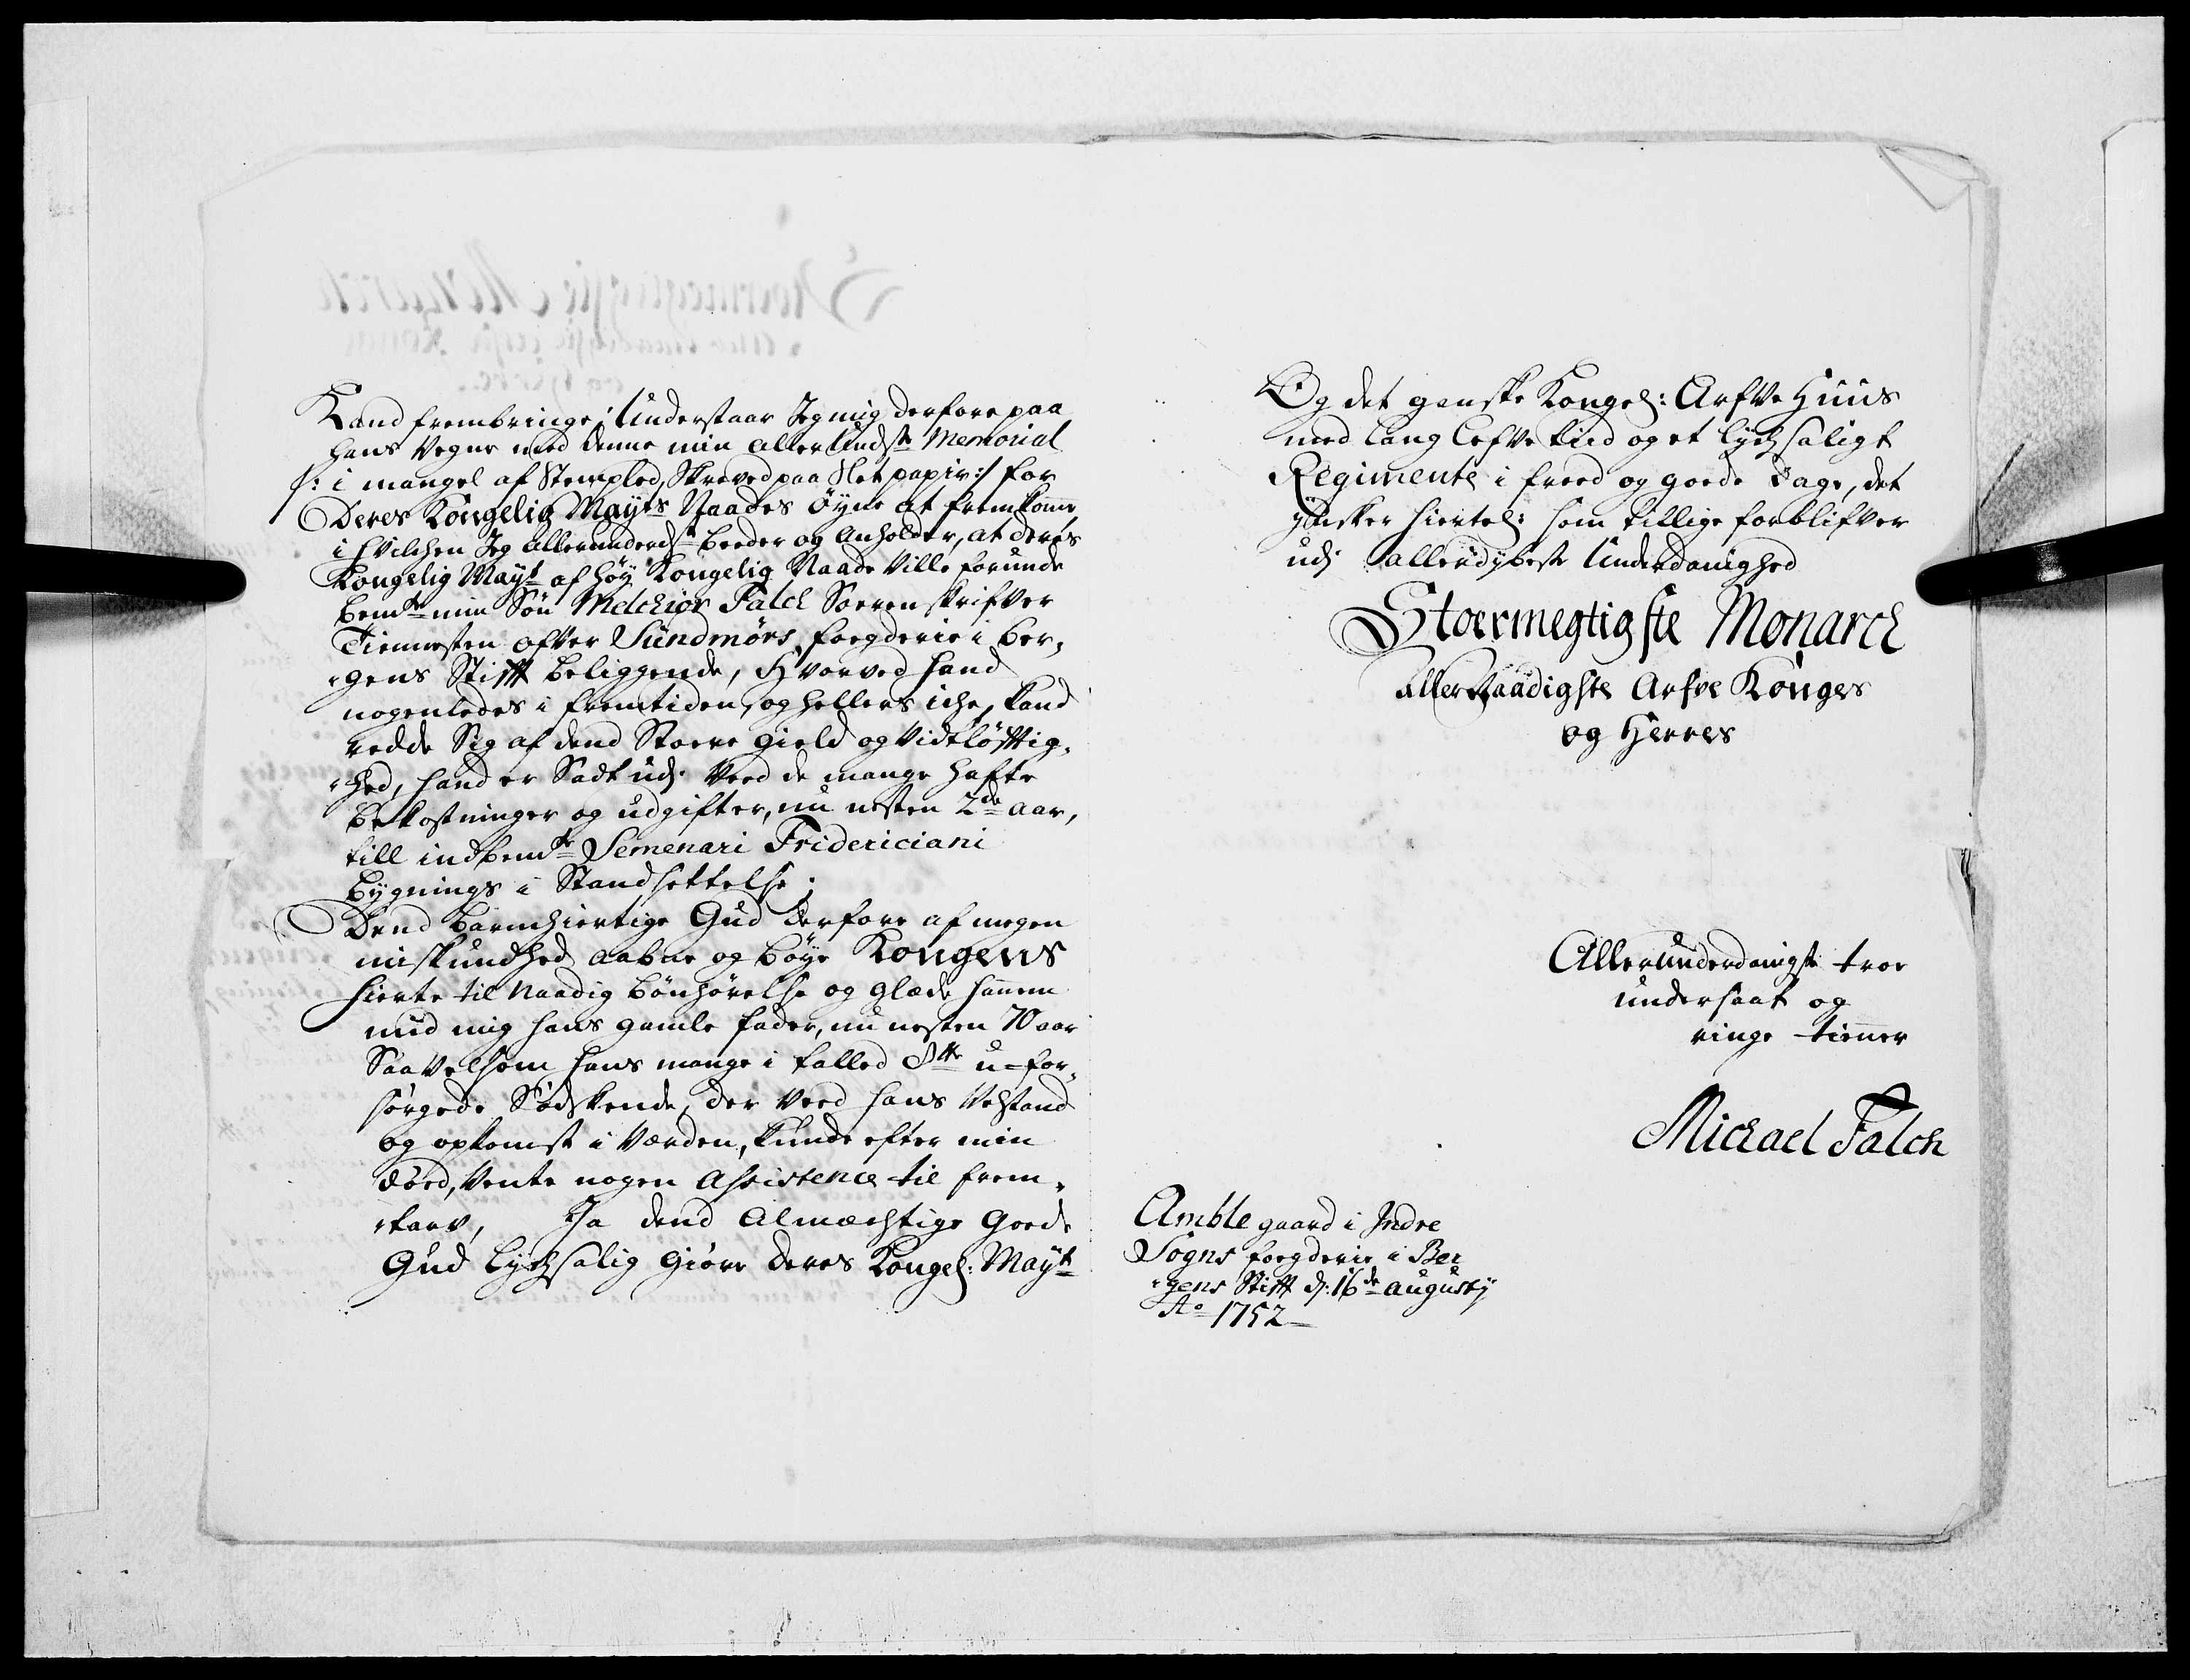 Kand frembringe; Understaar Jeg mig derfore paa
hans Vegne med denne min allerUndste Memorial
/: i mangel af Stemplod, Skreved paa Slet papir :/ for
Deres Kongelig Mayts Naades Øyne at fremkomme,
i hvilchen Jeg allerunderdst beeder og anholder, at deres
Kongelig Mayt af høy Kongelig Naade Ville forunde
bemte min Søn Melchior Falch Soerenskrifver
Tiennesten ofver Sundmørs foegderie i Ber¬
gens Stifft beliggende, Hvorved hand
nogenledes i fremtiden, og hellers iche, kand
redde Sig af dend Stoere gield og Vidtløfftig¬
hed, hand er Sadt udj Ved de mange hafte
bekostninger og udgifter, nu nesten 2de aar,
till indbemte Semenari Fridericiani
bygnings i Standsettelse;
Dend barmhiertige Gud derfore af megen
miskundhed aabne og bøye Kongens
hierte til Naadig bønhørelse og glæde hannem
med mig hans gamle fader, nu nesten 70 aar
Saavelsom hans mange i talled 8tte u=for¬
sørgede Sødskende, der Ved hans Velstand
og opkomst i Værden, kunde efter min
død, Vente nogen assistence til frem¬
tarv, Ja dend Almæchtige goede
Gud lychsalig giøre deres Kongel: Mayt
Og det ganske Kongel: Arfve Huus
med lang lefve tiid og et lychsaligt
Regimente i freed og goede dage, det
ynsker hiertel: som tillige forblifver
udj allerdybeste Underdanighed
Stoermegtigste Monarch
AllerNaadigste Arfve Konges
og Herres
Allerunderdanigste troe
undersaat og
ringe tienner
Michael Falch
Amble gaard i Indre
Sogns foegderie i Ber
gens Stifft d: 16de augusty
Ao 1752